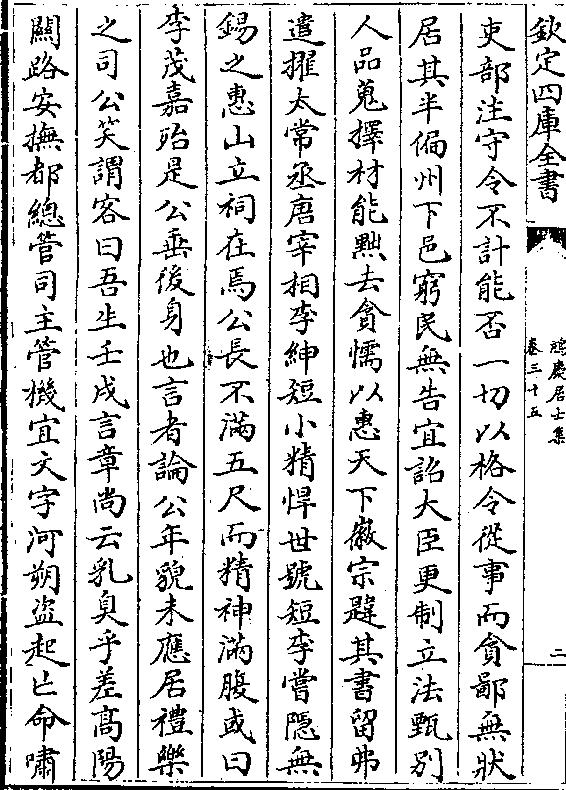 欽定四庫全書
鴻慶居士集
卷三十五
二
吏部注守令不計能否一切以格令從事而貪鄙無狀
居其半偏州下邑窮民無告宜詔大臣更制立法甄别
人品蒐擇材能黜去貪懦以惠天下徽宗韙其書留弗
遣擢太常丞唐宰相李紳短小精悍世號短李嘗隠無
錫之惠山立祠在焉公長不滿五尺而精神滿腹或曰
李茂嘉殆是公垂後身也言者論公年貌未應居禮樂
之司公笑謂客曰吾生壬戌言章尚云乳臭乎差髙陽
闗路安撫都總管司主管機宜文字河朔盗起亡命嘯